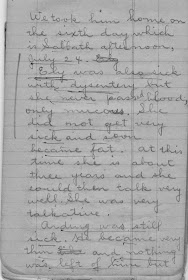 We took him home on
the sixth day which
is Sabbath afternoon,
July 24.
Esty was also sick
with dysentery but
she never passed blood,
only mucus. She
did not get very
sick and soon
became fat. At this
time she is about
three years and she
could then talk very
well. She was very
talkative.
Anding was still
sick. He became very
thin and nothing
was left of him but